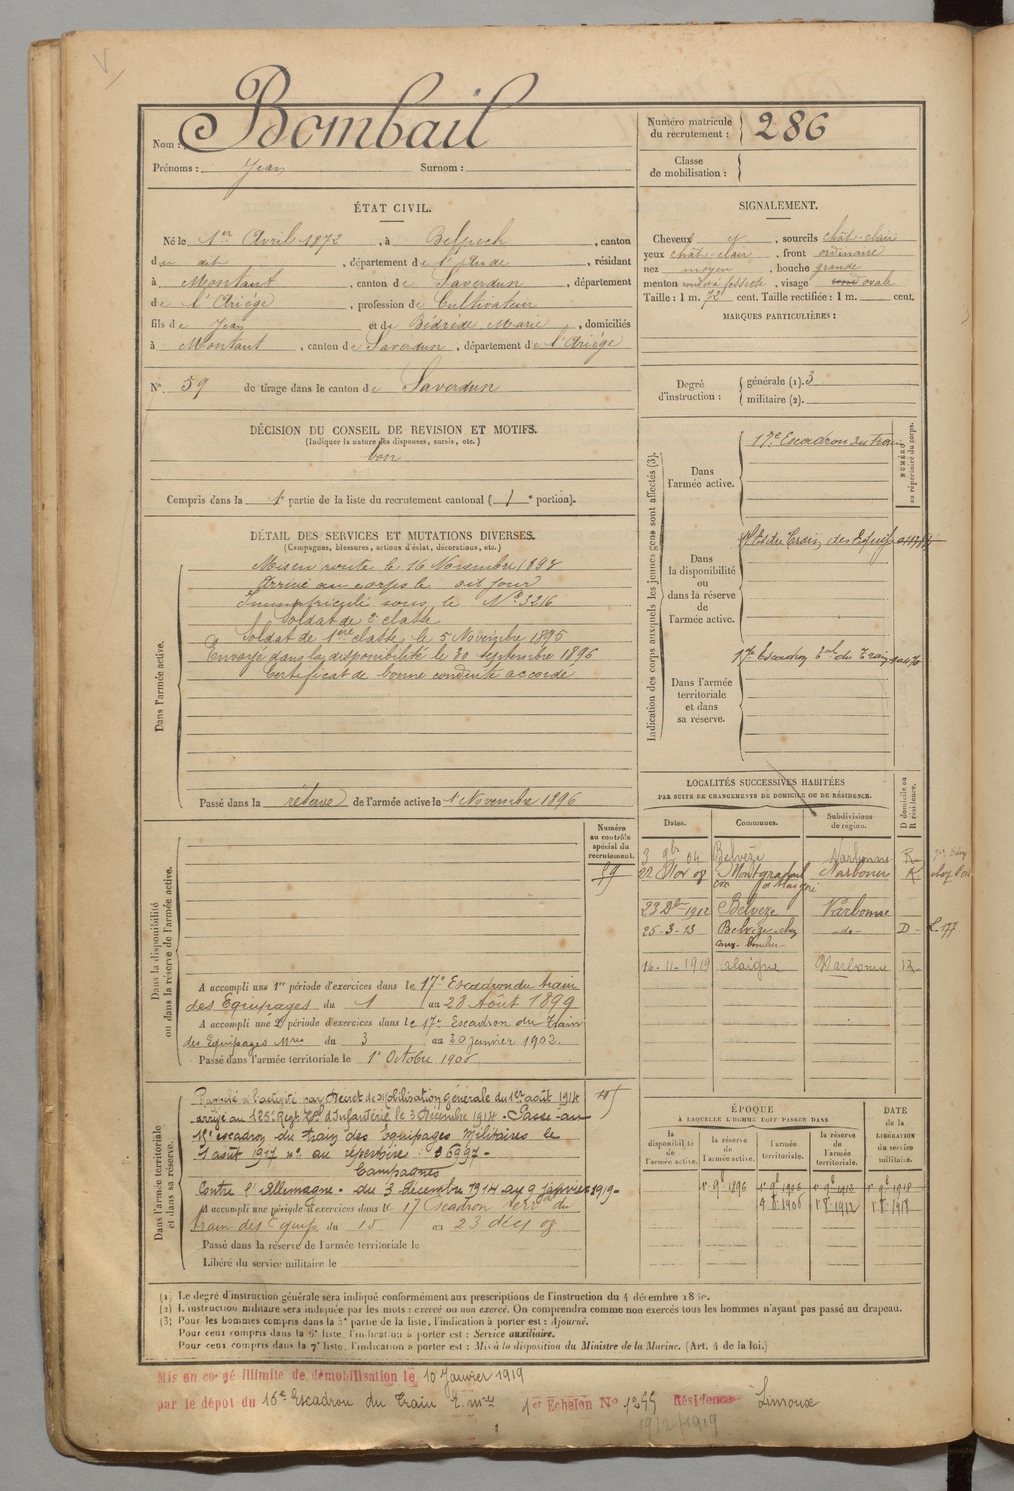 Nom : Bombail
Prénoms : Jean Surnom :
Numéro matricule du recrutement : 286
Classe de mobilisation :
ÉTAT CIVIL.
Né le 1er Avril 1872, à Belpech, canton
du dit, département de l'Aude, résidant
à Montaut, canton de Saverdun, département
de l'Ariège, profession de Cultivateur
fils de Jean et de Bédrède Marie, domiciliés
à Montaut, canton de Saverdun, département de l'Ariège
N° 59 de tirage dans le canton de Saverdun
SIGNALEMENT.
Cheveux et, sourcils chât-clair
yeux chât-clair, front ordinaire
nez moyen, bouche grande
menton fossette, visage ovale
Taille : 1 m. 72 cent. Taille rectifiée : 1 m. cent.
MARQUES PARTICULIÈRES :
Degré d'instruction : générale (1). 3
militaire (2).
DÉCISION DU CONSEIL DE REVISION ET MOTIFS.
(Indiquer la nature des dispenses, sursis, etc.)
bon
Compris dans la 1e partie de la liste du recrutement cantonal (1e portion).
DÉTAIL DES SERVICES ET MUTATIONS DIVERSES.
(Campagnes, blessures, actions d'éclat, décorations, etc.)
Dans l'armée active.
Mis en route le 16 Novembre 1893
Arrivé au corps le dit jour
Immatriculé sous le N° 3216
Soldat de 2e classe
Soldat de 1ère classe le 5 Novembre 1895
Envoyé dans la disponibilité le 30 septembre 1896
Certificat de bonne conduite accordé
Passé dans la réserve de l'armée active le 1 Novembre 1896
Indication des corps auxquels les jeunes gens sont affectés (3).
NUMÉRO au répertoire du corps.
Dans l'armée active.
17e Escadron du train
Dans la disponibilité ou dans la réserve de l'armée active.
du Train des Equip
Dans l'armée territoriale et dans sa réserve.
17e Escadron du Train
LOCALITÉS SUCCESSIVES HABITÉES
PAR SUITE DE CHANGEMENTS DE DOMICILE OU DE RÉSIDENCE.
Dates. Communes. Subdivisions de région. D domicile ou R résidence.
3 9bre 04 Belvèze Narbonne R
22 Nov 08 Narbonne R
23 Dbre 1912 Belvèze Narbonne
25-3-13 Belvèze -do- D
16-11-1919 Alaigne Narbonne R
Dans la disponibilité ou dans la réserve de l'armée active.
Numéro au contrôle spécial du recrutement.
A accompli une 1re période d'exercices dans le 17e Escadron du train
des Equipages du 1 au 28 Août 1899
A accompli une 2e période d'exercices dans le 17e Escadron du Train
des Equipages Mres du 3 au 30 janvier 1902.
Passé dans l'armée territoriale le 1er Octobre 1906
Dans l'armée territoriale et dans sa réserve.
Rappelé à l'activité par Décret de Mobilisation Générale du 1er août 1914
arrivé au 125e Regt d'Infanterie le 3 Décembre 1914. Passe au
escadron du train des Equipages Militaires le
1 août 1917 n° au répertoire : 6997 -
Campagnes
Contre l'Allemagne - du 3 décembre 1914 au 9 janvier 1919 -
A accompli une période d'exercices dans le 17 Escadron terral du
train des Equip du 15 au 23 déc 08
Passé dans la réserve de l'armée territoriale le
Libéré du service militaire le
ÉPOQUE
À LAQUELLE L'HOMME DOIT PASSER DANS
la disponibilité de l'armée active.
la réserve de l'armée active.
l'armée territoriale.
la réserve de l'armée territoriale.
DATE de la LIBÉRATION du service militaire.
1r 9e 1896 1r 9e 1906 1r 9e 1912 1r 9e 1918
1r 8e 1906 1r 8e 1912 1r 8e 1918
(1) Le degré d'instruction générale sera indiqué conformément aux prescriptions de l'instruction du 4 décembre
(2) L'instruction militaire sera indiquée par les mots : exercé ou non exercé. On comprendra comme non exercés tous les hommes n'ayant pas passé au drapeau.
(3) Pour les hommes compris dans la 5e partie de la liste, l'indication à porter est : Ajourné.
Pour ceux compris dans la 6e liste, l'indication à porter est : Service auxiliaire.
Pour ceux compris dans la 7e liste, l'indication à porter est : Mis à la disposition du Ministre de la Marine. (Art. 4 de la loi.)
Mis en congé illimité de démobilisation le 10 Janvier 1919
par le dépot du 16e Escadron du Train E. mres 1er Echelon N° 1255 Résidence Limoux
19/2/1919